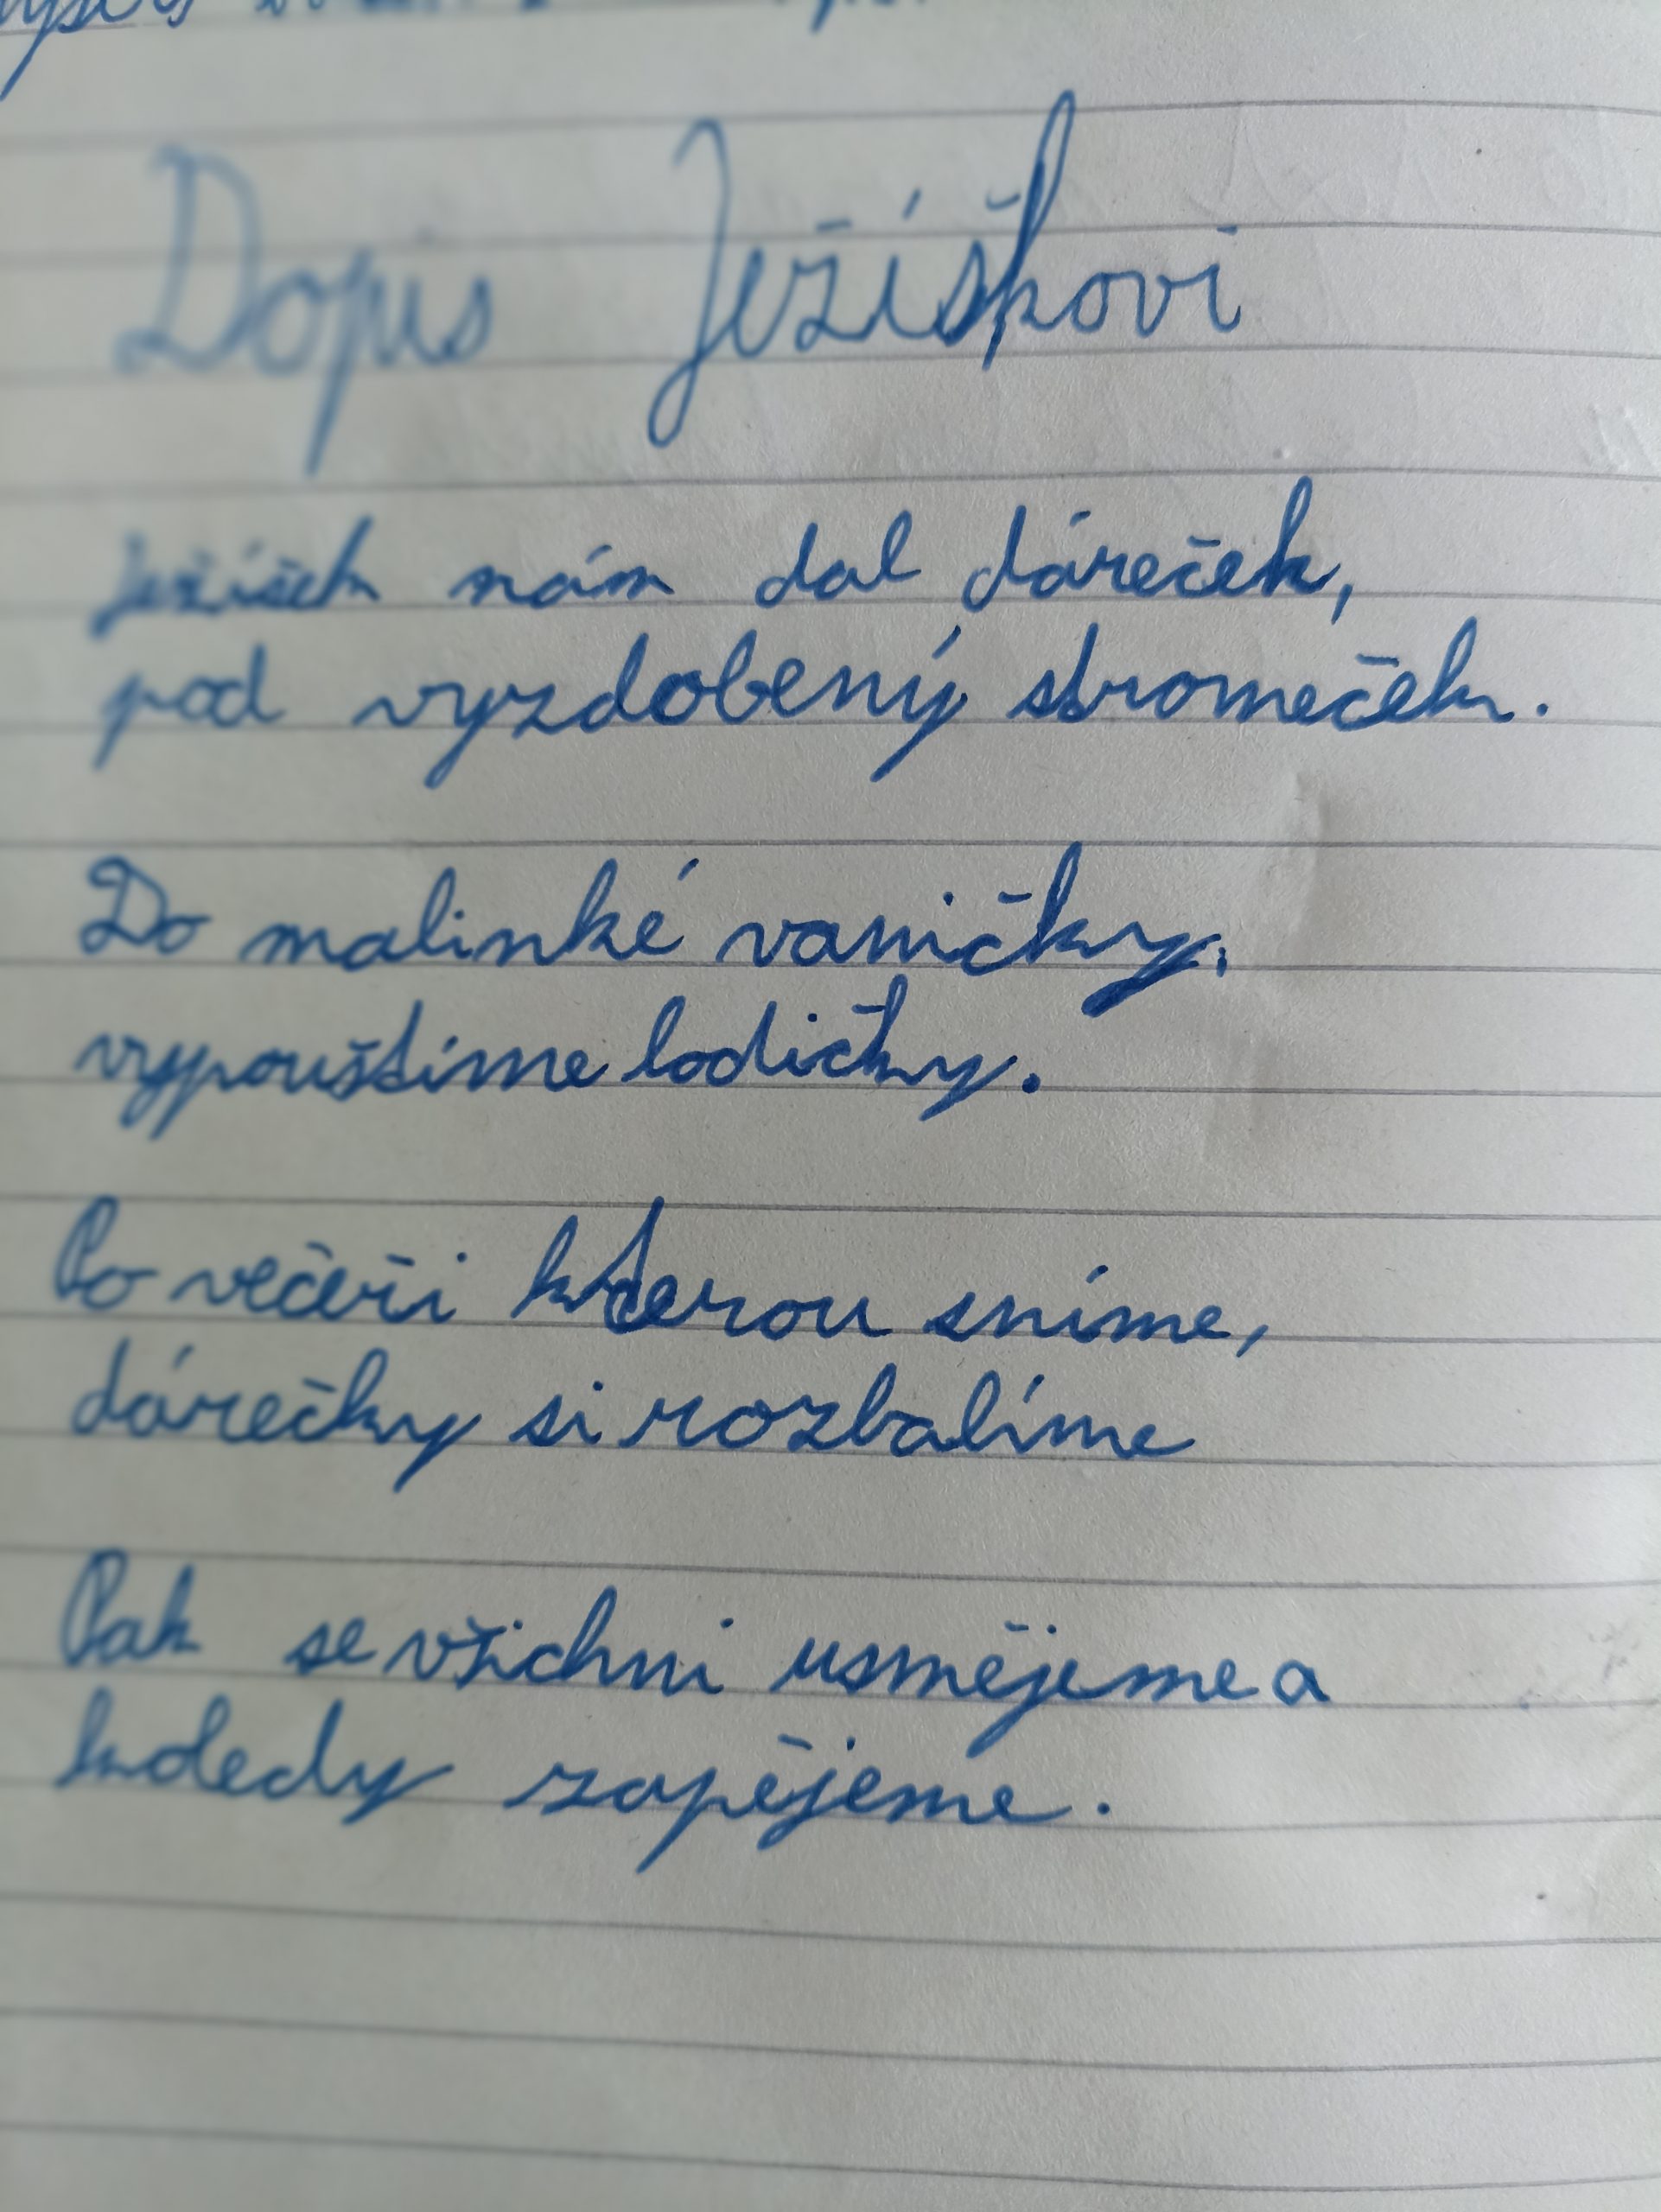 Dopis Ježíškovi
ježíšek nám dal dáreček,
pod vyzdobený stromeček.
Do malinké vaničky,
vypouštíme lodičky.
Po večeři kterou sníme,
dárečky si rozbalíme
Pak se všichni usmějeme a
koledy zapějeme.